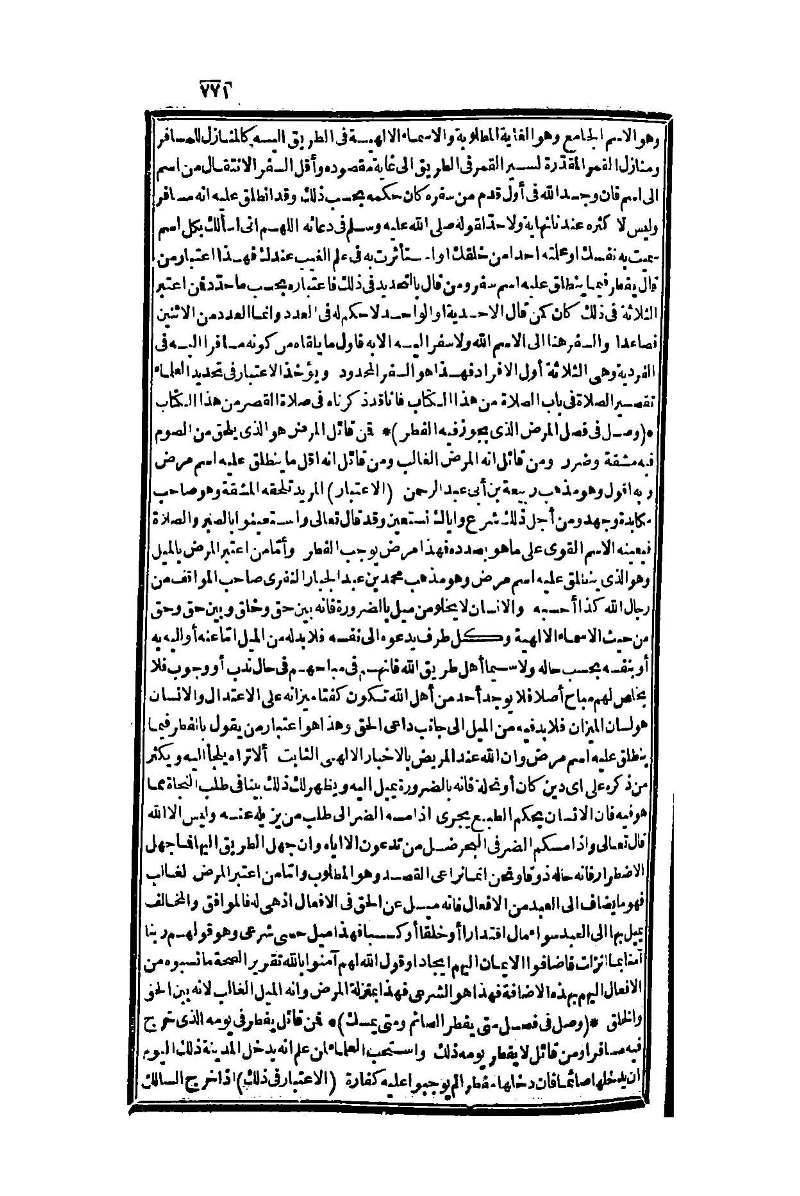 ٧٧١
وهو الاسم الجامع وهو الغاية المطلوبة والاسماء الالهية فى الطريق اليه كالمنازل للمسافر
ومنازل القمر المقدرة لسير القمر فى الطريق الى غاية مقصوده وأقل السفر الانتقال من اسم
الى اسم فان وجد الله فى أول قدم من سفره كان حكمه بحسب ذلك وقد انطلق عليه انه مسافر
وليس لا كثره عندنا نهاية ولا حد لقوله صلى الله عليه وسلم فى دعائه اللهم انى اسألك بكل اسم
سميت به نفسك او علمته احدا من خلقك او استأثرت به فى علم الغيب عندك فهذا اعتبار من
قال يفطر فيما ينطلق عليه اسم سفر ومن قال بالتحديد فى ذلك فاعتباره بحسب ما حدد فمن اعتبر
الثلاثة فى ذلك كان كمن قال الاحدية او الواحد لا حكم له فى العدد وانما العدد من الاثنين
فصاعدا والسفر هنا الى الاسم الله ولا سفر اليه الا به فاول ما يلقاه من كونه مسافرا اليه فى
الفردية وهى الثلاثة أول الافراد فهذا هو السفر المحدود ويؤخذ الاعتبار فى تحديد العلماء
تقصير الصلاة فى باب الصلاة من هذا الكتاب فانا قد ذكرناه فى صلاة القصر من هذا الكتاب
*(وصل فى فصل المرض الذى يجوز فيه الفطر)* فمن قائل المرض هو الذى يلحق من الصوم
فيه مشقة وضرر ومن قائل انه المرض الغالب ومن قائل انه اقل ما ينطلق عليه اسم مرض
وبه اقول وهو مذهب ربيعة بن أبى عبد الرحمن (الاعتبار) المريد تلحقه المشقة وهو صاحب
مكابدة وجهد ومن أجل ذلك شرع واياك نستعين وقد قال تعالى واستعينوا بالصبر والصلاة
فيعينه الاسم القوى على ما هو بصدده فهذا مرض يوجب الفطر وأمّا من اعتبر المرض بالميل
وهو الذى ينطلق عليه اسم مرض وهو مذهب محمد بن عبد الجبار النفرى صاحب المواقف من
رجال الله كذا أحسبه والانسان لا يخلو من ميل بالضرورة فانه بين حق وخلق وبين حق وحق
من حيث الاسماء الالهية وكل طرف يدعوه الى نفسه فلا بد له من الميل امّا عنه أو اليه به
أو بنفسه بحسب حاله ولا سيما أهل طريق الله فانهم فى مباحهم فى حال ندب أو وجوب فلا
يخلص لهم مباح أصلا فلا يوجد أحد من أهل الله تكون كفتا ميزانه على الاعتدال والانسان
هو لسان الميزان فلا بد فيه من الميل الى جانب داعى الحق وهذا هو اعتبار من يقول بالفطر فيما
ينطلق عليه اسم مرض وان الله عند المريض بالاخبار الالهى الثابت ألا تراه يلجأ اليه ويكثر
من ذكره على اى دين كان أو نحلة فانه بالضرورة يميل اليه ويظهر لك ذلك بينا فى طلب النجاة مما
هو فيه فان الانسان بحكم الطبع يجرى اذا مسه الضر الى طلب من يزيله عنه وليس الا الله
قال تعالى واذا مسكم الضر فى البحر ضل من تدعون الا اياه وان جهل الطريق اليها فما جهل
الاضطرار فانه حاله ذوقا ونحن انما نراعى القصد وهو المطلوب وامّا من اعتبر المرض لغالب
فهو ما يضاف الى العبد من الافعال فانه ميل عن الحق فى الافعال اذ هى له فالموافق والمخالف
يميل بها الى العبد سواء مال اقتدارا أو خلقا أو كسبا فهذا ميل حسى شرعى وهو قولهم ربنا
آمنا بما انزلت فاضافوا الايمان اليهم ايجادا وقول الله لهم آمنوا بالله تقرير الصحة ما نسبوه من
الافعال اليهم بهذه الاضافة فهذا هو الشرعى فهذا بمنزلة المرض وانه الميل الغالب لانه بين الحق
والخلق *(وصل فى فصل متى يفطر الصائم ومتى يمسك)* فمن قائل يفطر فى يومه الذى خرج
فيه مسافرا ومن قائل لا يفطر يومه ذلك واستحب العلماء لمن علم انه يدخل المدينة ذلك اليوم
ان يدخلها صائما فان دخلها مفطرا لم يوجبوا عليه كفارة (الاعتبار فى ذلك) اذا خرج السالك